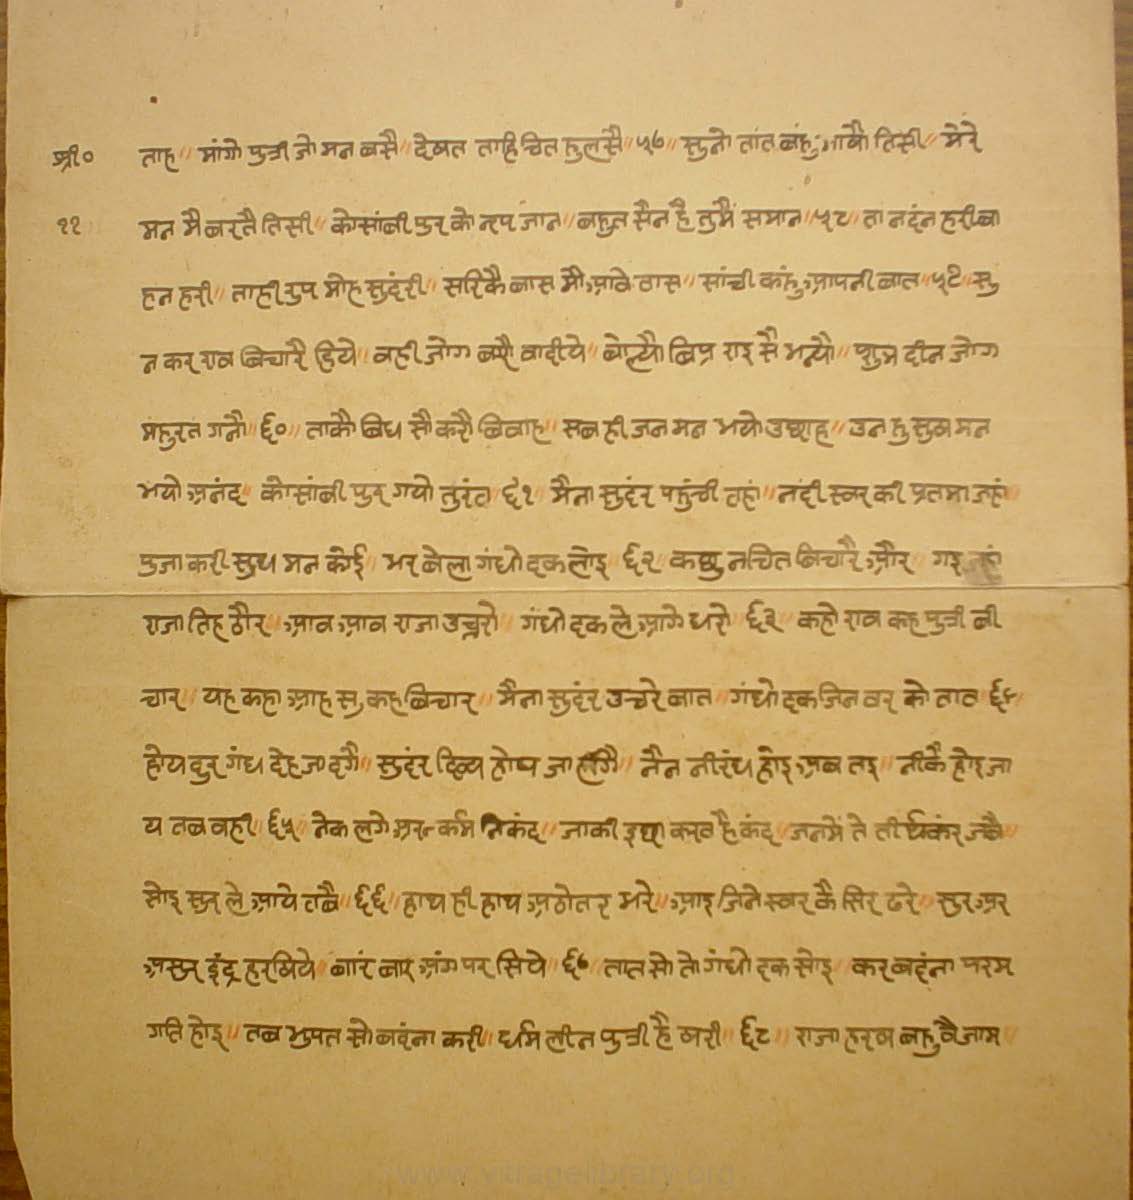 श्री० ताह॥ मांगो पुत्री जो मन बसै॥ देषत ताहि चित हुलसै॥ ५७॥ सुनो तांत बंहु तिसी॥ मेरे
११ मन मै बरतै तिसी॥ कोसांबी पुर को नृप जान॥ बहुत सैन है तुमैं समान॥ ५८॥ ता नदंन हरीबा
हन हरी॥ ताही रुप मोह सुदंरी॥ सरिकै बास मौ ठास॥ सांची कंहु आपनी बात॥ ५९॥ सु
न कर राव बिचारै हिये॥ वही जोग बरौ वादीये॥ बोल्यौ बिप्र राइ सै भन्यौ॥ शुभ दीन जोग
मंहुरत गनौ॥ ६०॥ ताकौ बिध सौ करौ बिवाह॥ सब ही जन मन भयो उछाह॥ उन हु सुख मन
भयो अनंद॥ कोसांबी पुर गयो तुरंत॥ ६१॥ मैना सुदंर पहुंची तहां॥ नंदी स्वर की प्रतमा जहां॥
पुजा करी सुध मन कोई॥ भर बेला गंधोदक लोइ॥ ६२॥ कछु न चित बिचारै और॥ गइ जहां
राजा तिह ठौर॥ आव आव राजा उच्चरो॥ गंधोदक ले आगे धरो॥ ६३॥ कहो राव कह पुत्री बी
चार॥ यह कहा आह सु कह बिचार॥ मैना सुदंर उचरे बात॥ गंधोदक जिन वर को तात॥ ६४॥
होय दुर गंध देह जगै॥ सुदंर दिव्य होय जा लगै॥ नैन नीरंध होइ अब तइ॥ नीकै होइ जा
य तब वही॥ ६५॥ तेक लगे कर्म निकंद॥ जाकी इछा करव है कंद॥ जनमें ते तीर्थंकर जबै॥
सोइ सुर ले आये तबै॥ ६६॥ हाथ ही हाथ अठोतर भरे॥ आइ जिनेस्वर कै सिर ढरे॥ सुर अर
असुर इंद्र हरषिये॥ बारं बार अंग परसिये॥ ६७॥ तात सो तो गंधोदक सोइ॥ कर बदंना परम
गति होइ॥ तब भुपत सो बदंना करी॥ धर्म लीन पुत्री है खरी॥ ६८॥ राजा हरष बहु वै जाम॥
www.vitragelibrary.org